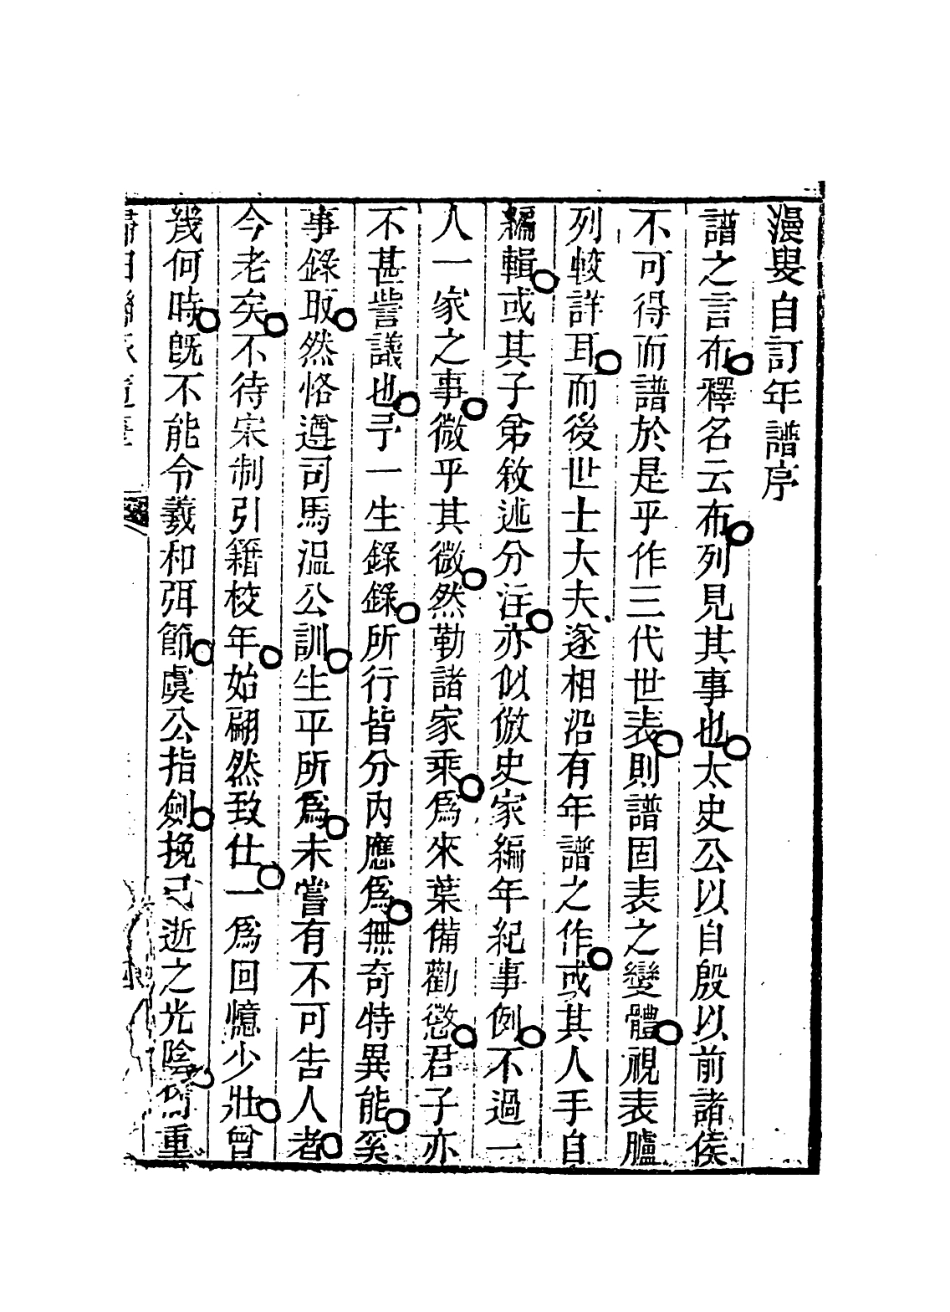 漫叟自訂年譜序
譜之言布釋名云布列見其事也太史公以自殷以前諸侯
不可得而譜於是乎作三代世表則譜固表之變體視表臚
列較詳耳而後世士大夫遂相沿有年譜之作或其人手自
編輯或其子弟敘述分注亦似倣史家編年紀事例不過一
人一家之事微乎其微然勒諸家乘爲來葉備勸懲君子亦
不甚訾議也予一生錄錄所行皆分內應爲無奇特異能奚
事錄取然恪遵司馬溫公訓生平所爲未嘗有不可告人者
今老矣不待宋制引籍校年始翩然致仕一爲回憶少壯曾
幾何時旣不能令羲和弭節虞公指劍挽已逝之光陰爲重